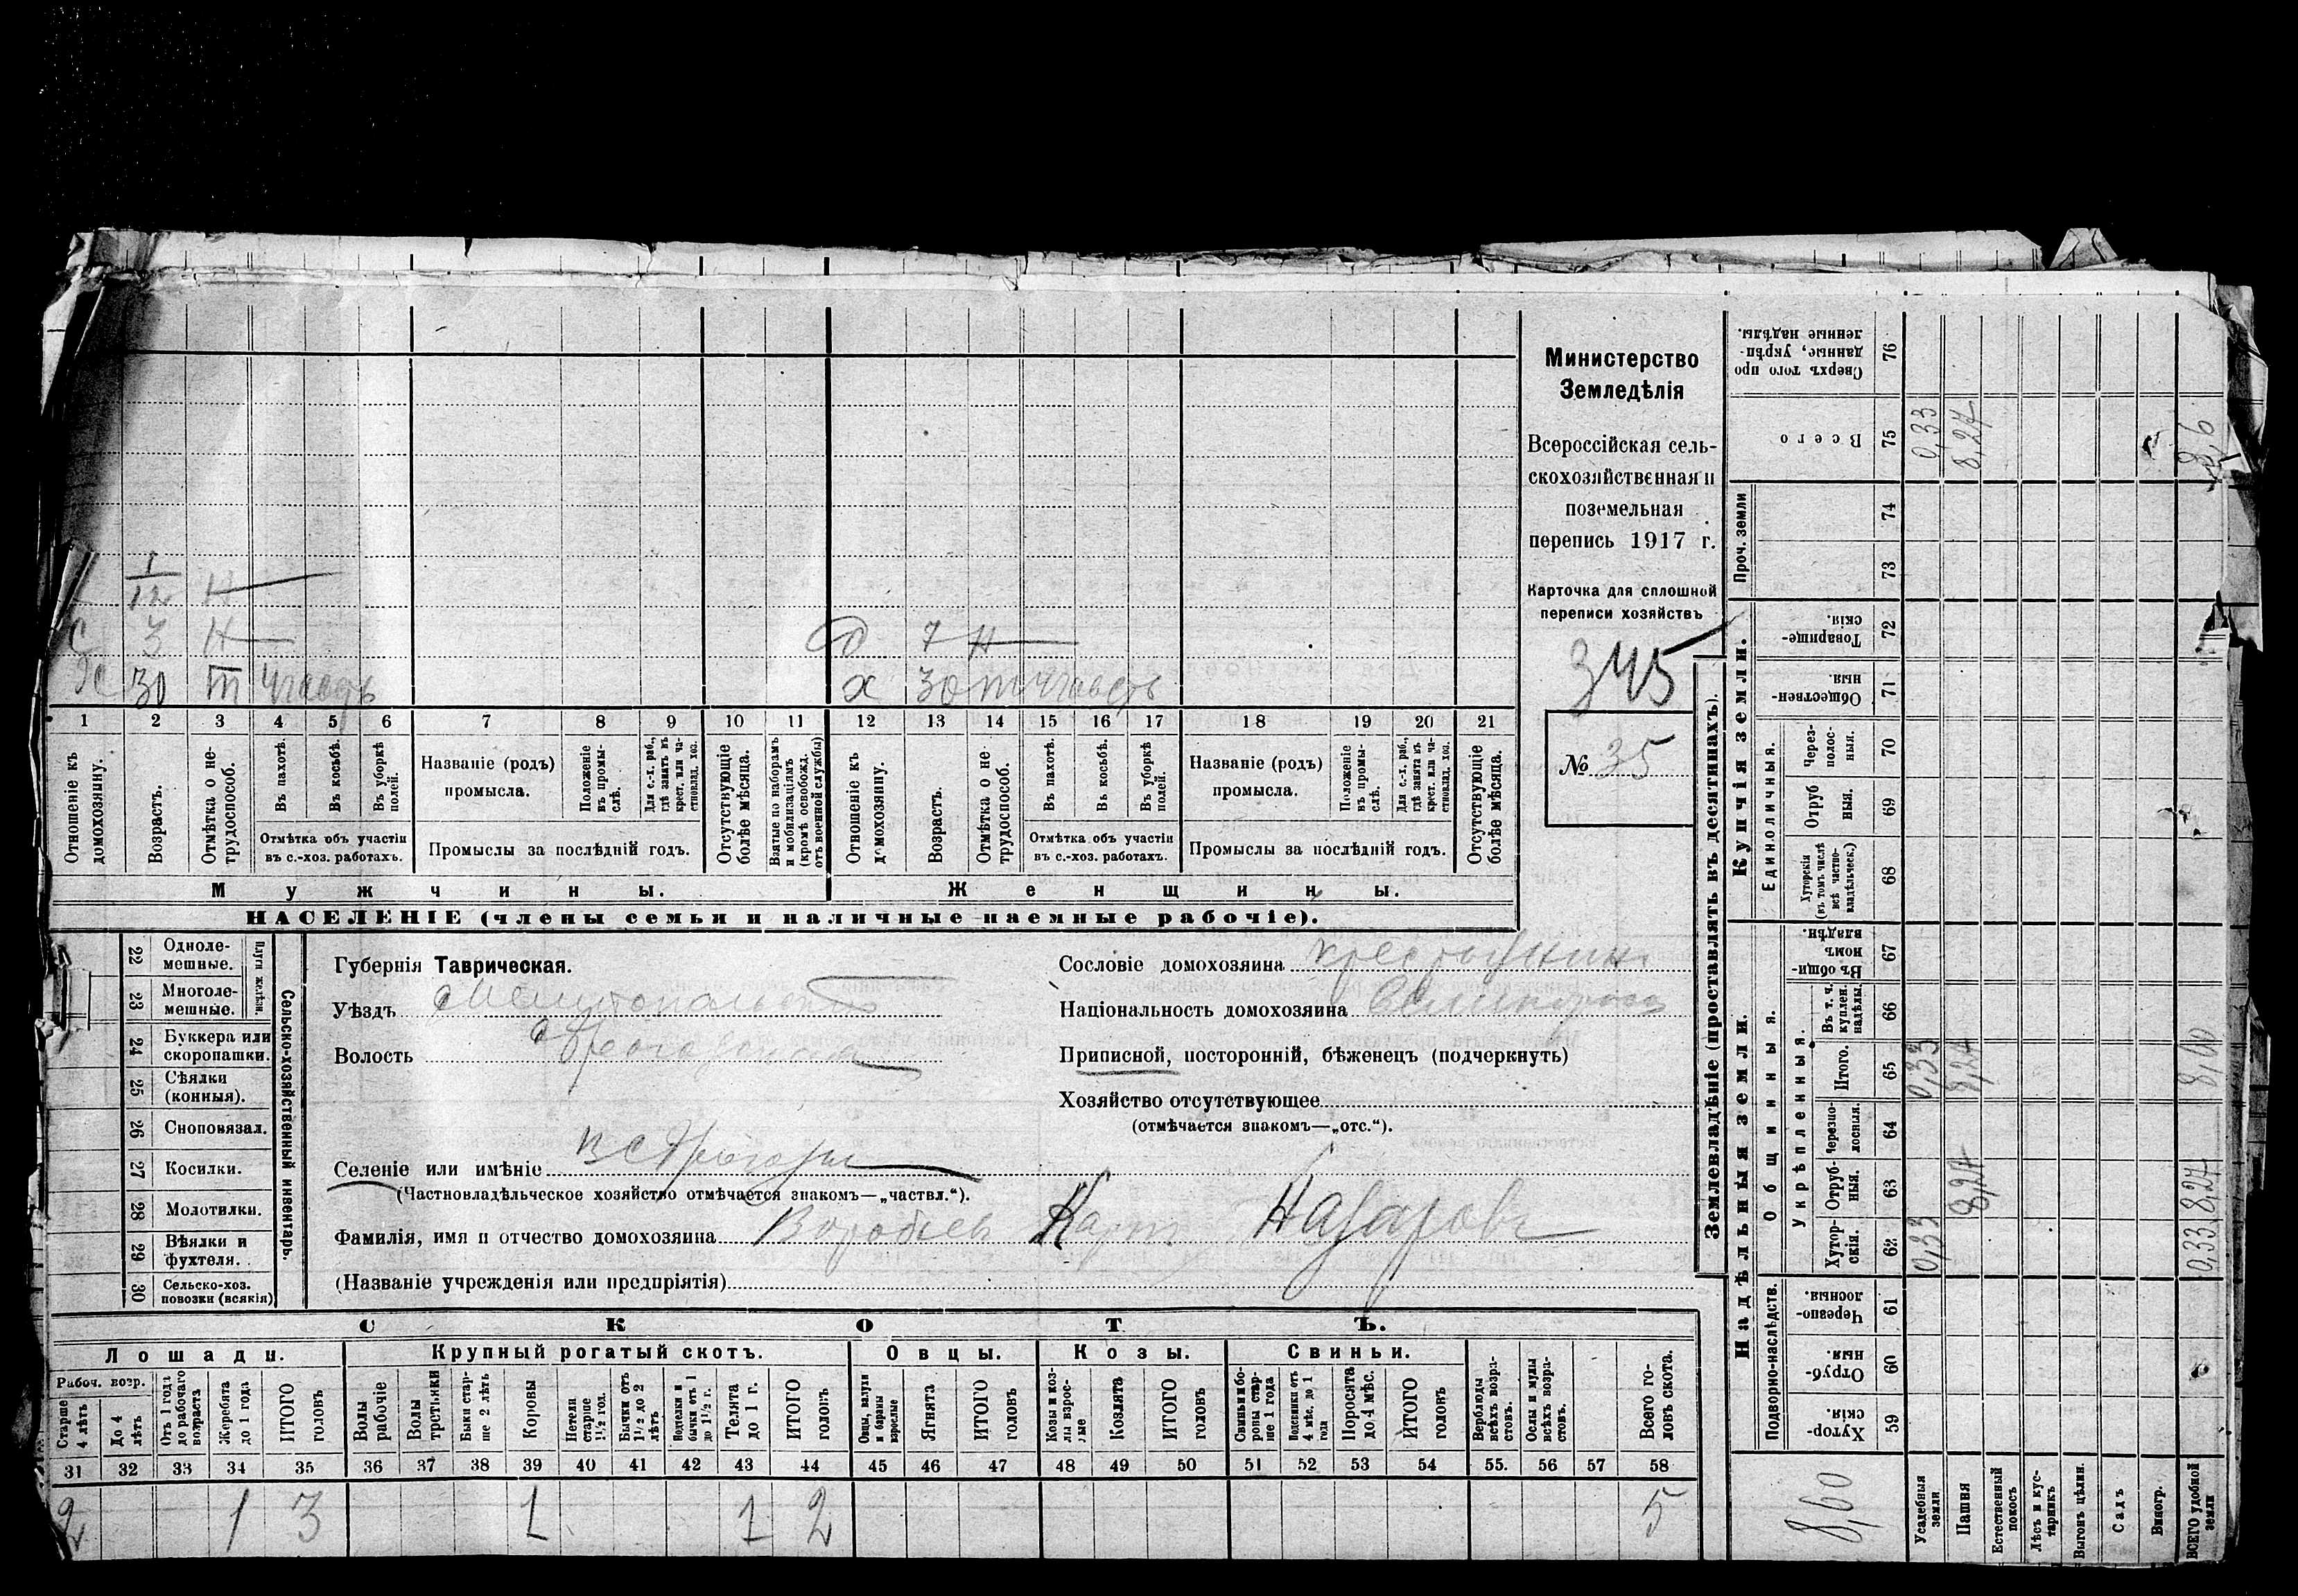 1/12 Н
С 3 Н
30 III
д 7 Н
х 30
1 2 3 4 5 6 7 8 9 10 11 12 13 14 15 16 17 18 19 20 21
Отношеніе къ домохозяину.
Возрастъ.
Отмѣтка о нетрудоспособ.
Въ пахотѣ.
Въ косьбѣ.
Въ уборкѣ полей.
Отмѣтка объ участіи
въ с.-хоз. работахъ.
Названіе (родъ)
промысла.
Положеніе въ промыслѣ.
Для с.-х. раб., гдѣ занятъ въ крест. или частновлад. хоз.
Промыслы за послѣдній годъ.
Отсутствующіе болѣе мѣсяца.
Взятые по наборамъ и мобилизаціямъ (кромѣ освобожд. отъ военной службы)
Отношеніе къ домохозяину.
Возрастъ.
Отмѣтка о нетрудоспособ.
Въ пахотѣ.
Въ косьбѣ.
Въ уборкѣ полей.
Отмѣтка объ участіи
въ с.-хоз. работахъ.
Названіе (родъ)
промысла.
Положеніе въ промыслѣ.
Для с.-х. раб., гдѣ занята въ крест. или частновлад. хоз.
Промыслы за послѣдній годъ.
Отсутствующіе болѣе мѣсяца.
Мужчины.
Женщины.
НАСЕЛЕНІЕ (члены семьи и наличные наемные рабочіе).
Министерство
Земледѣлія
Всероссійская сель-
скохозяйственная и
поземельная
перепись 1917 г.
Карточка для сплошной
переписи хозяйствъ
345
№ 35
22 Одноле-
мешные.
23 Многоле-
мешные.
Плуги желѣзн.
24 Буккера или
скоропашки.
25 Сѣялки
(конныя).
26 Сноповязал.
27 Косилки.
28 Молотилки.
29 Вѣялки и
фухтеля.
30 Сельско-хоз.
повозки (всякія)
Сельско-хозяйственный инвентарь.
Губернія Таврическая.
Уѣздъ Мелитопольскій
Волость
Селеніе или имѣніе
(Частновладѣльческое хозяйство отмѣчается знакомъ—„частвл.“).
Фамилія, имя и отчество домохозяина Воробьев Карп Назаровъ
(Названіе учрежденія или предпріятія)
Сословіе домохозяина крестьянин
Національность домохозяина Великоросс
Приписной, посторонній, бѣженец (подчеркнуть)
Хозяйство отсутствующее
(отмѣчается знакомъ—„отс.“).
СКОТЪ.
Лошади.
Крупный рогатый скотъ.
Овцы.
Козы.
Свиньи.
Рабоч. возр.
Старше 4 лѣтъ
До 4 лѣтъ
Отъ 1 года до рабочаго возраста
Жеребята до 1 года
ИТОГО головъ
Волы рабочіе
Волы третьяки
Быки старше 2 лѣтъ
Коровы
Нетели старше 1½ год.
Бычки отъ 1½ до 2 лѣтъ
Подтелки и бычки отъ 1 до 1½ г.
Телята до 1 г.
ИТОГО головъ
Овцы, валухи и бараны взрослые
Ягнята
ИТОГО головъ
Козы и козлы взрослые
Козлята
ИТОГО головъ
Свиньи и боровы старше 1 года
Подсвинки отъ 4 мѣс. до 1 года
Поросята до 4 мѣс.
ИТОГО головъ
Верблюды всѣхъ возрастовъ.
Ослы и мулы всѣхъ возрастовъ.
Всего головъ скота.
31 32 33 34 35 36 37 38 39 40 41 42 43 44 45 46 47 48 49 50 51 52 53 54 55. 56 57 58
2 1 3 1 1 2 5
Землевладѣніе (проставлять въ десятинахъ).
Купчія земли.
Надѣльныя земли.
Сверхъ того проданные, укрѣпленные надѣлы. 76
Всего 75 0,33 8,27 8,6
Проч. земли
74
73
Товарищескія. 72
Общественныя. 71
Единоличныя.
Черезполосныя. 70
Отрубныя. 69
Хуторскія (въ томъ числѣ всѣ частновладѣльческ.) 68
Общинныя.
Въ общинномъ владѣн. 67
Укрѣпленныя.
Въ т. ч. куплен. надѣлы. 66
Итого. 65 0,33 8,27 8,60
Черезполосныя. 64
Отрубныя. 63 8,27 8,27
Хуторскія. 62 0,33 0,33
Подворно-наслѣдств.
Черезполосныя. 61
Отрубныя 60
Хуторскія 59
8,60
Усадебныя земли
Пашня
Естественный покосъ
Лѣсъ и кустарникъ
Выгонъ цѣлин.
Садъ
Виногр.
ВСЕГО удобной земли